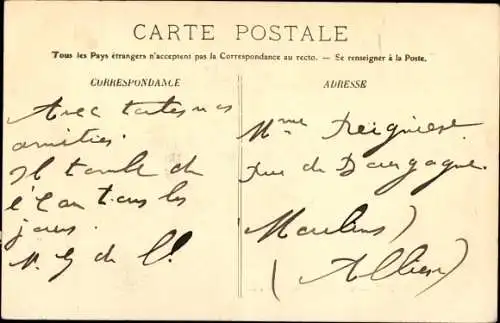 CARTE POSTALE
Tous les Pays étrangers n'acceptent pas la Correspondance au recto. — Se renseigner à la Poste.
CORRESPONDANCE
Avec toutes nos
amitiés.
Il tombe de
l'eau tous les
jours.
ADRESSE
Mme
Rue de Bourgogne
Moulins
(Allier)